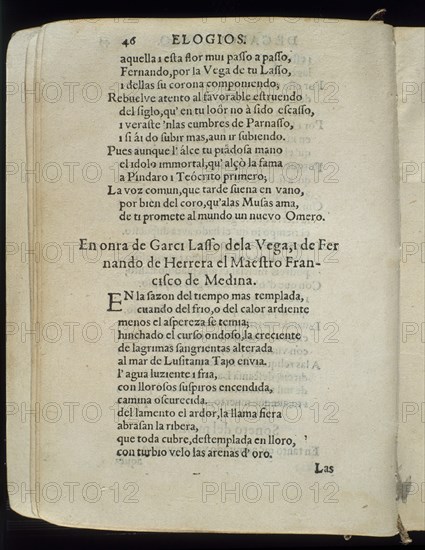 46 ELOGIOS.
aquella i esta flor mui paſſo a paſſo,
Fernando, por la Vega de tu Laſſo,
i dellas ſu corona componiendo;
Rebuelve atento al favorable eſtruendo
del ſiglo, qu' en tu loôr no à ſido eſcaſſo,
i veraſte 'nlas cumbres de Parnaſſo,
i ſi ái do ſubir mas, aun ir ſubiendo.
Pues aunque l' álce tu piâdoſa mano
el idolo immortal, qu' alçò la fama
a Píndaro i Teócrito primero;
La voz comun, que tarde ſuena en vano,
por bien del coro, qu' alas Muſas ama,
de ti promete al mundo un nuevo Omero.
En onra de Garci Laſſo dela Vega, i de Fer
nando de Herrera el Maeſtro Fran-
ciſco de Medina.
EN la ſazon del tiempo mas templada,
cuando del frio, o del calor ardiente
menos el aſpereza ſe temia;
hinchado el curſo ondoſo, la creciente
de lagrimas ſangrientas alterada
al mar de Luſitania Tajo envia.
l' agua luziente i fria,
con lloroſos ſuſpiros encendida,
camina oſcurecida.
del lamento el ardor, la llama fiera
abraſan la ribera,
que toda cubre, deſtemplada en lloro,
con turbio velo las arenas d' oro.
Las
PHOTO12